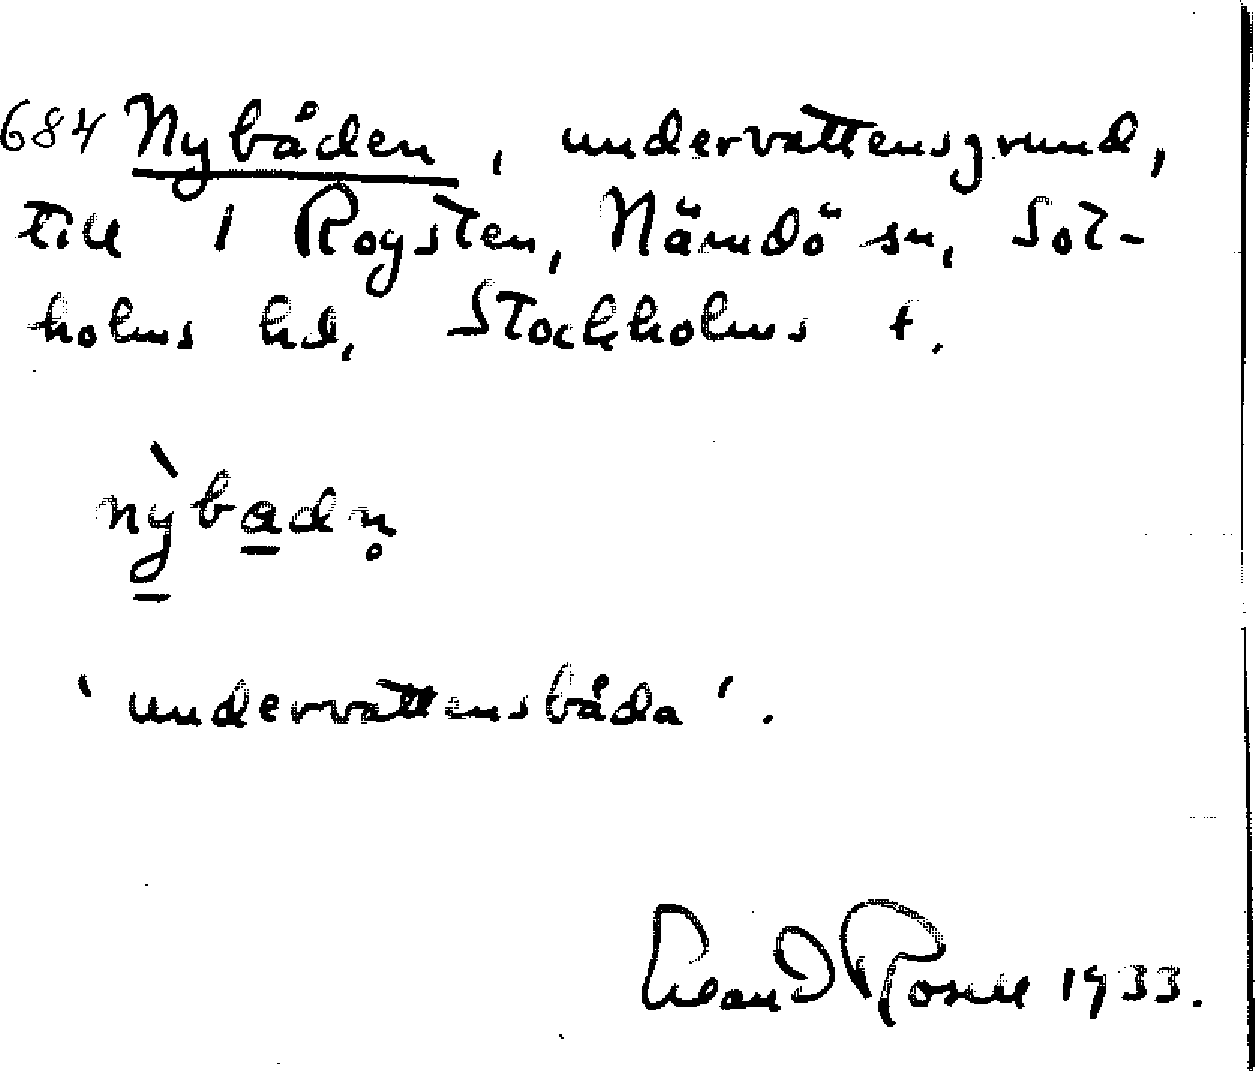 684 Nybåden, undervattensgrund,
till 1 Rogsten, Nämdö sn, Sot-
holms hd, Stockholms t.
nỳ̱ba̱dn̥
'undervattensbåda'.
Erland Rosell 1933.